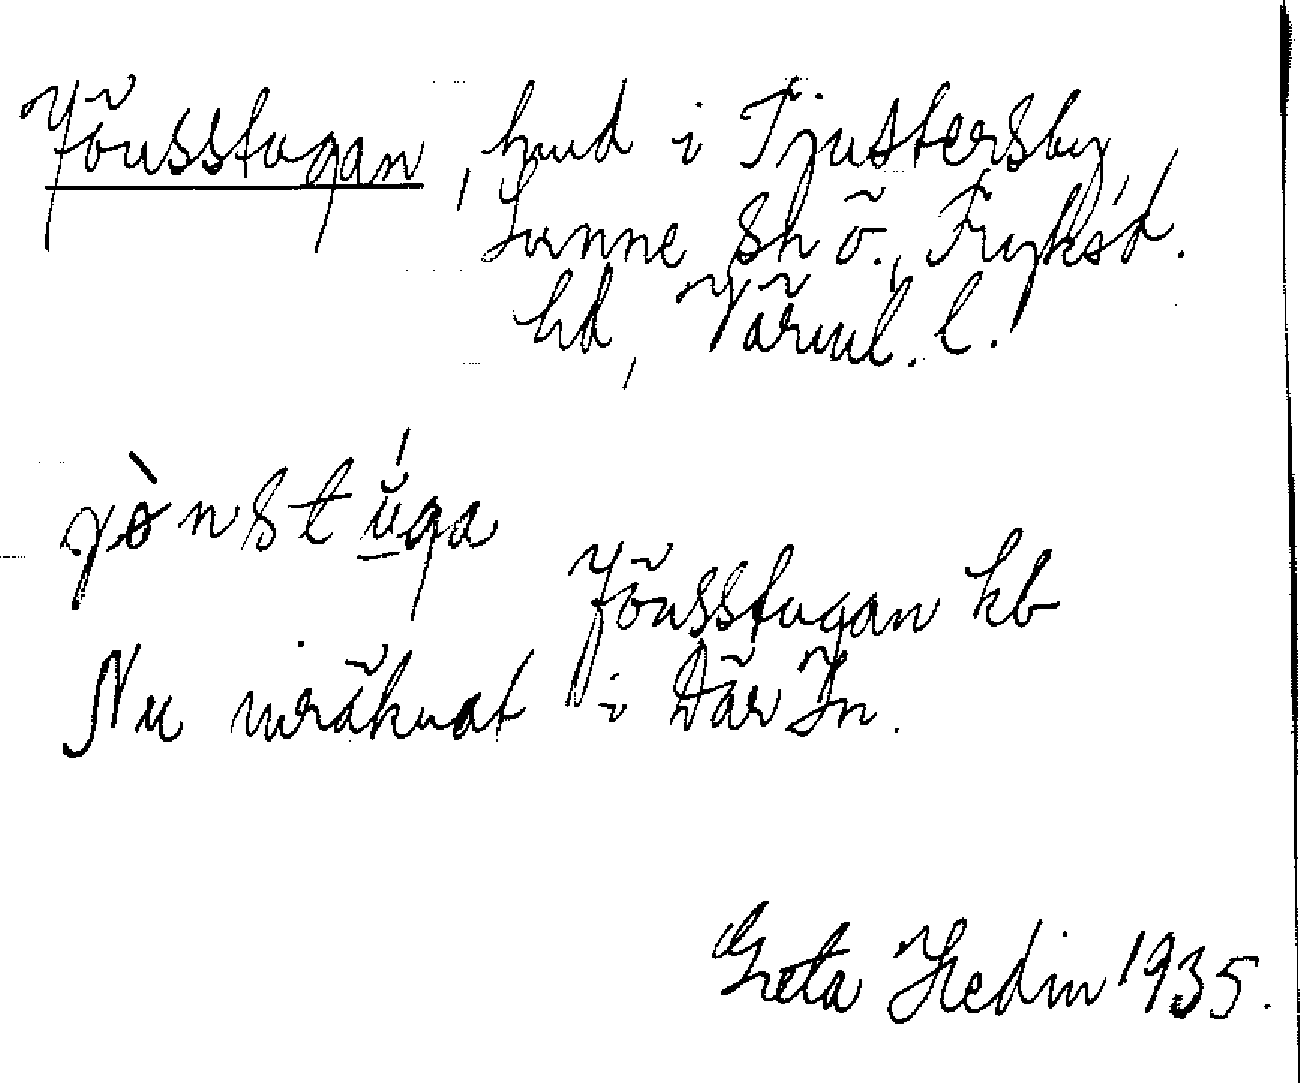 Jönsstugan, hmd i Tjustersby,
Sunne sn ö., Fryksd.
hd, Värml. l.
jònstúga
Jönsstugan kb
Nu uträknat i Där In.
Greta Hedin 1935.